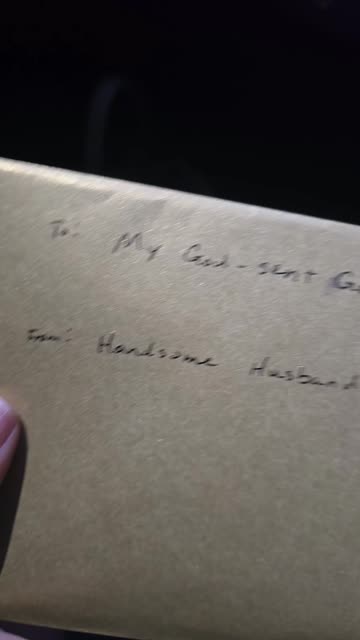 To: My God-sent
From: Handsome Husband